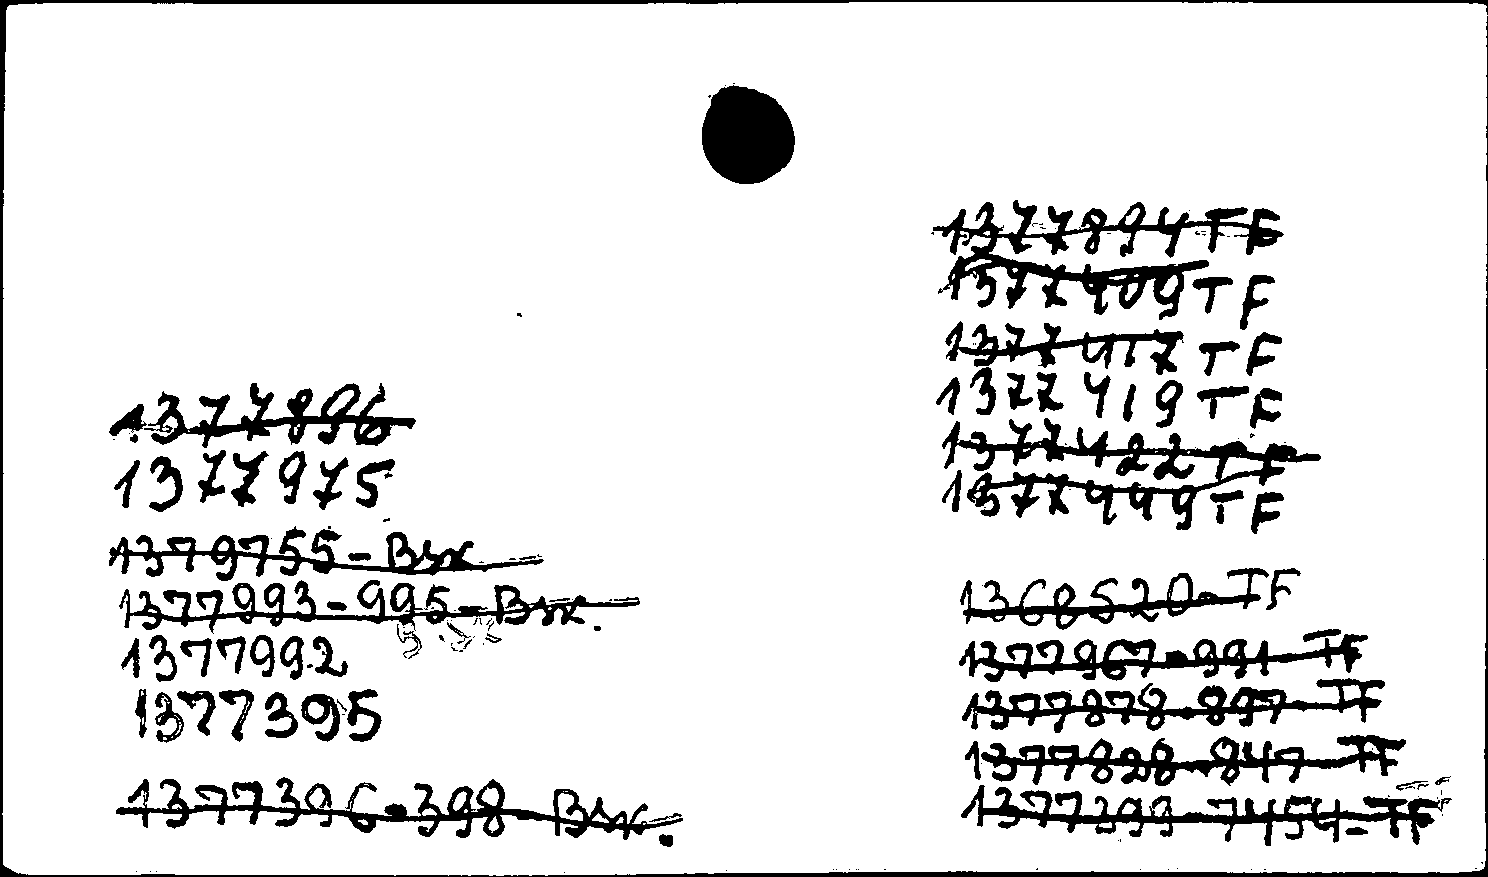 1377896
1377975
1379755-Bsx
1377993-995-Bsx.
1377992
1377395
1377396-398-Bsx.
1377894 TF
1377409 TF
1377417 TF
1377419 TF
1377422 TF
1377449 TF
1368520-TF
1377967-991-TF
1377878-897-TF
1377828-847-TF
1377399-7454-TF